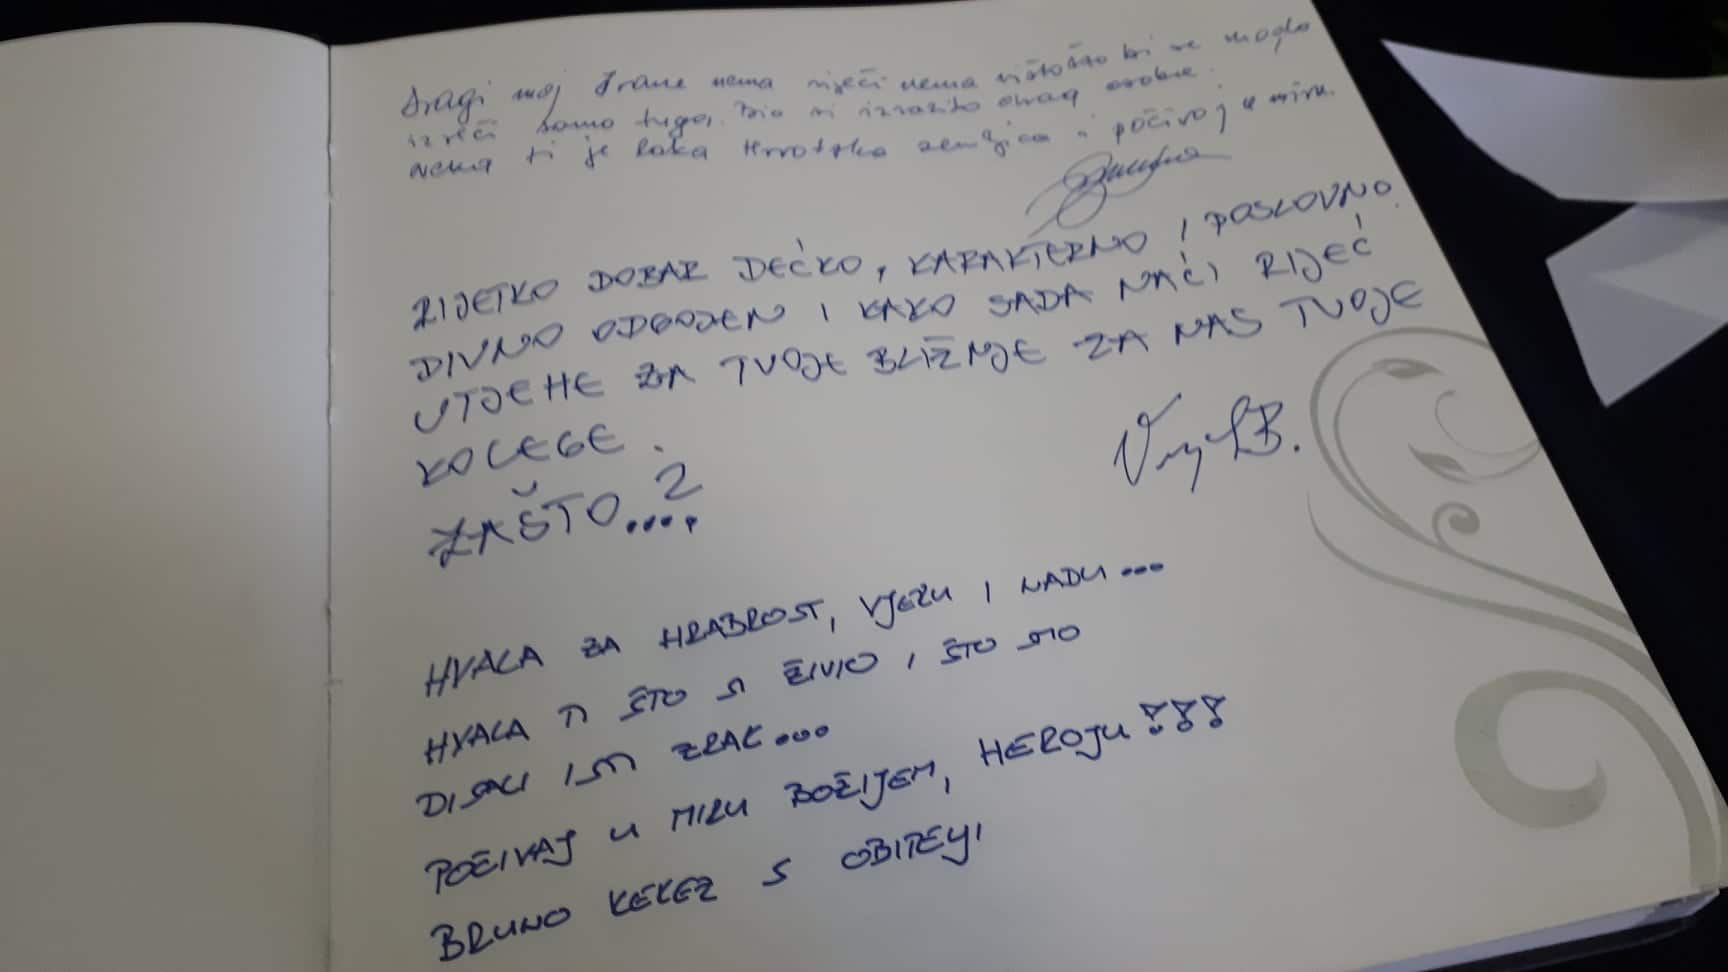 Dragi moj Frane nema riječi nema ništa što bi se moglo
izreči samo tuga. Bio si izrazito drag
neka ti je laka Hrvatska zemljica i počivaj u miru.
RIJETKO DOBAR DEČKO, KARAKTERNO I POSLOVNO
DIVNO ODGOJEN I KAKO SADA NAĆI RIJEČ
UTJEHE ZA TVOJE BLIŽNJE ZA NAS TVOJE
KOLEGE.
ZAŠTO....?
HVALA ZA HRABROST, VJERU I NADU...
HVALA TI ŠTO SI ŽIVIO I ŠTO SMO
DISALI ISTI ZRAK...
POČIVAJ U MIRU BOŽIJEM, HEROJU!!!
BRUNO KEKEZ S OBITELJI